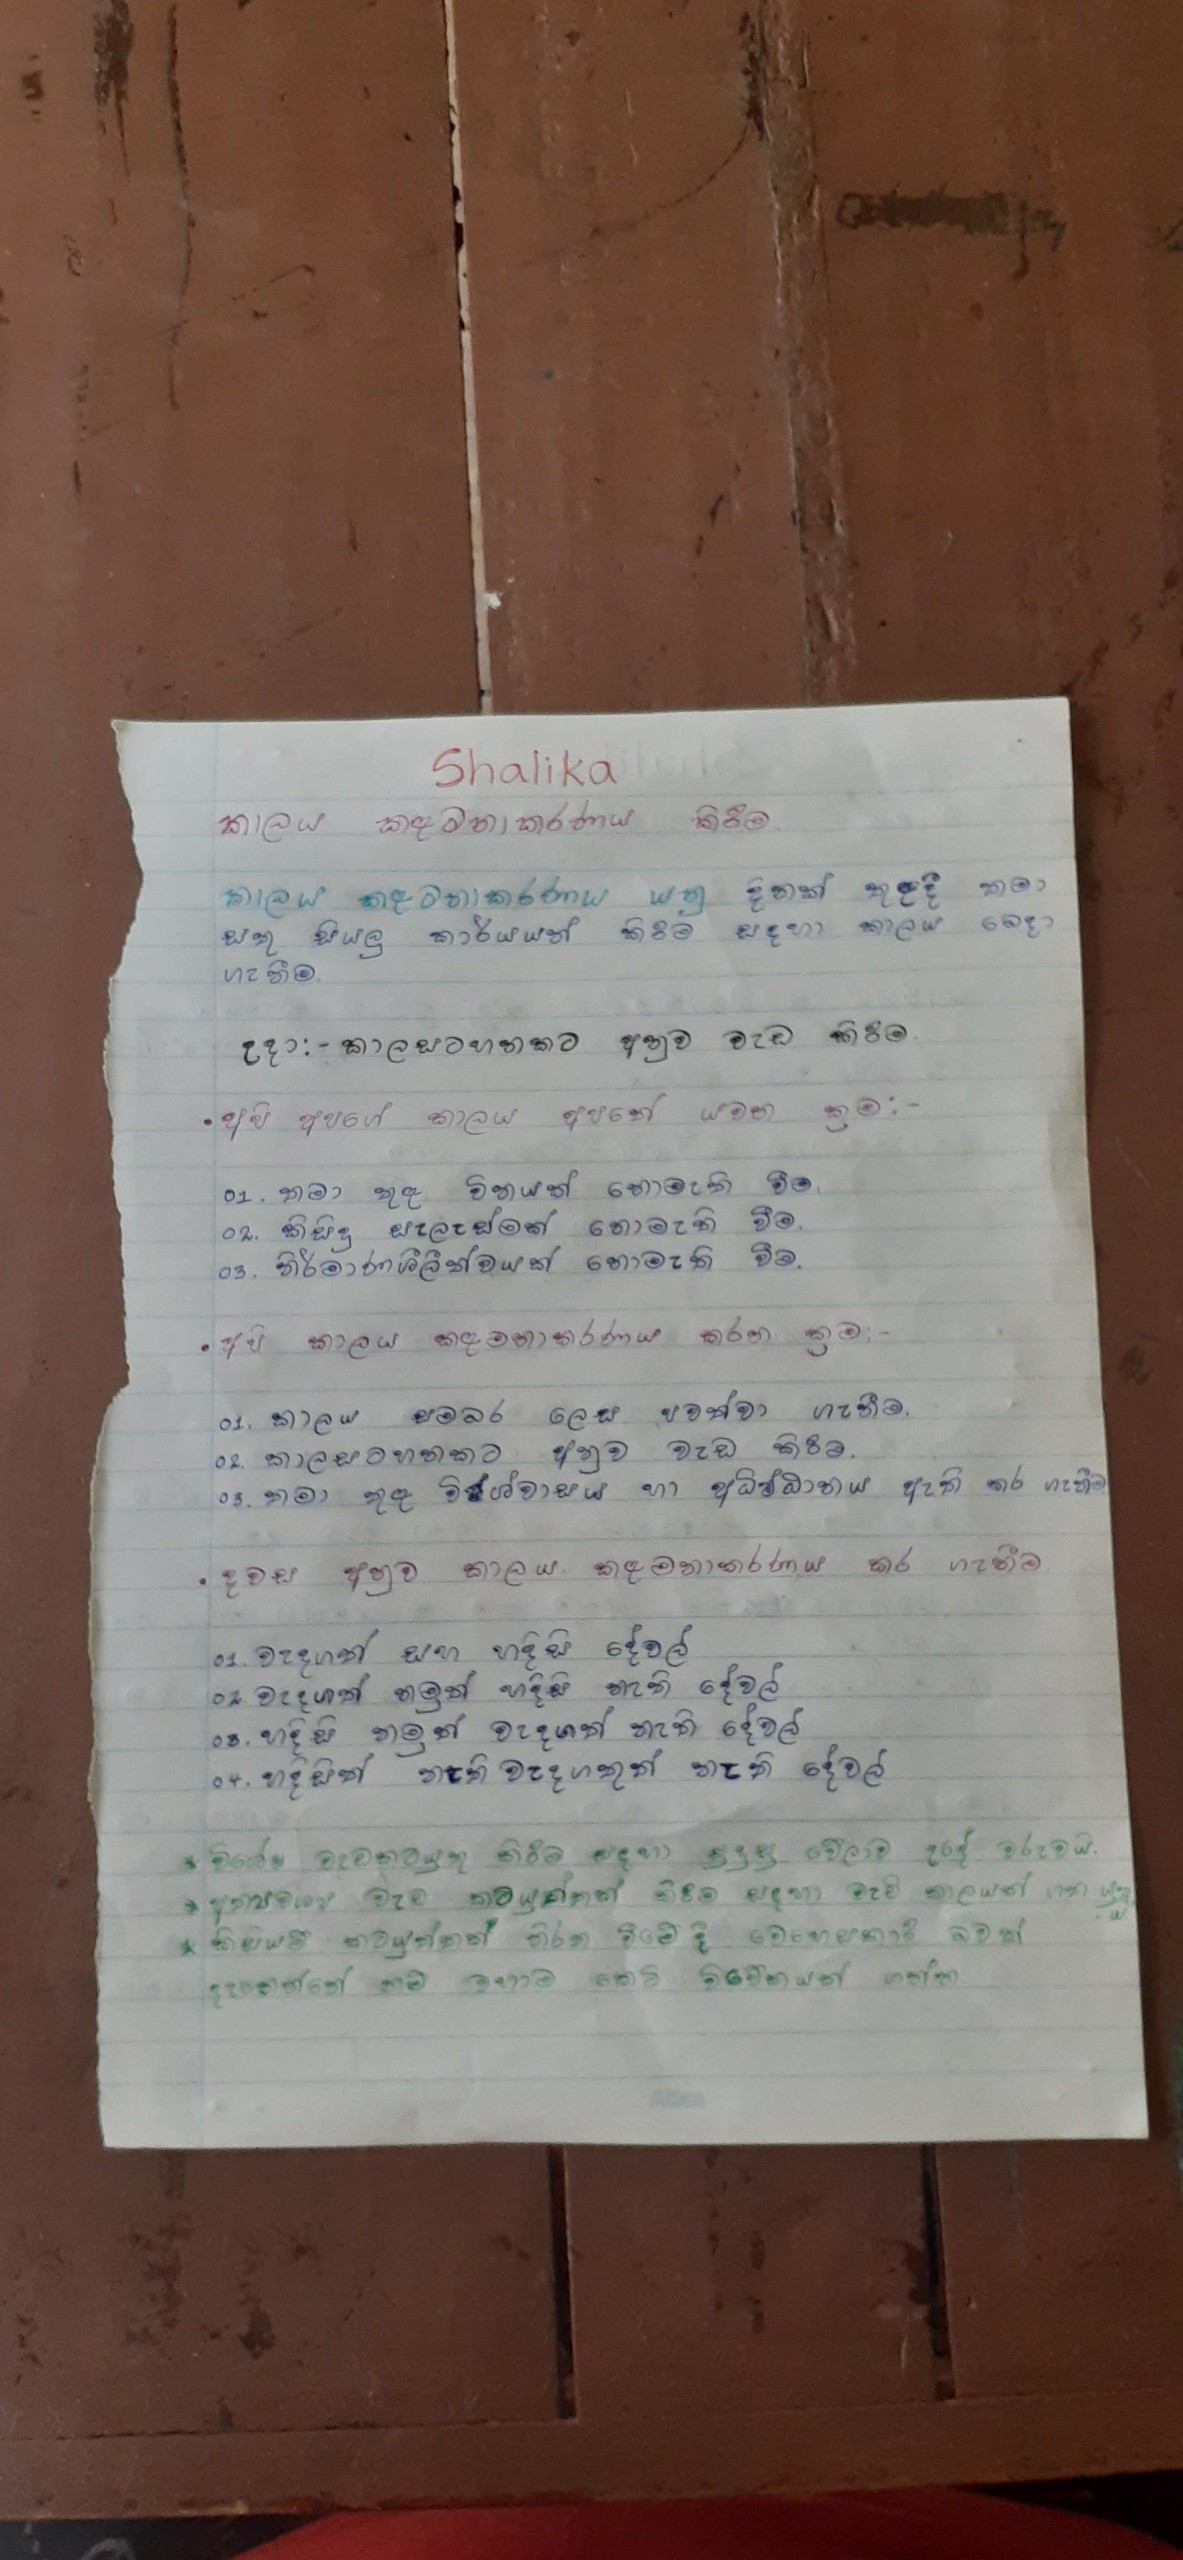 Shalika
කාලය කළමනාකරණය කිරීම.
කාලය කළමනාකරණය යනු දිනක් තුළදී තමා
සතු සියලු කාර්යයන් කිරීම සඳහා කාලය බෙදා
ගැනීම.
උදා:- කාලසටහනකට අනුව වැඩ කිරීම.
• අපි අපගේ කාලය අපතේ යවන ක්‍රම:-
01. තමා තුළ විනයක් නොමැති වීම.
02. කිසිදු සැලැස්මක් නොමැති වීම.
03. නිර්මාණශීලීත්වයක් නොමැති වීම.
• අපි කාලය කළමනාකරණය කරන ක්‍රම:-
01. කාලය සමබර ලෙස පවත්වා ගැනීම.
02. කාලසටහනකට අනුව වැඩ කිරීම.
03. තමා තුළ විශ්වාසය හා අධිෂ්ඨානය ඇති කර ගැනීම
• දවස අනුව කාලය කළමනාකරණය කර ගැනීම
01. වැදගත් සහ හදිසි දේවල්
02. වැදගත් නමුත් හදිසි නැති දේවල්
03. හදිසි නමුත් වැදගත් නැති දේවල්
04. හදිසිත් නැති වැදගතුත් නැති දේවල්
* විශේෂ වැඩකටයුතු කිරීම සඳහා සුදුසු වේලාව උදේ වරුවයි.
* අත්‍යවශ්‍ය වැඩ කටයුත්තක් කිරීම සඳහා වැඩි කාලයක් ගත යුතු
ය.
* කිසියම් කටයුත්තක් නිරත වීමේ දී වෙහෙසකාරී බවක්
දැනෙන්නේ නම් කෙටි විවේකයක් ගන්න